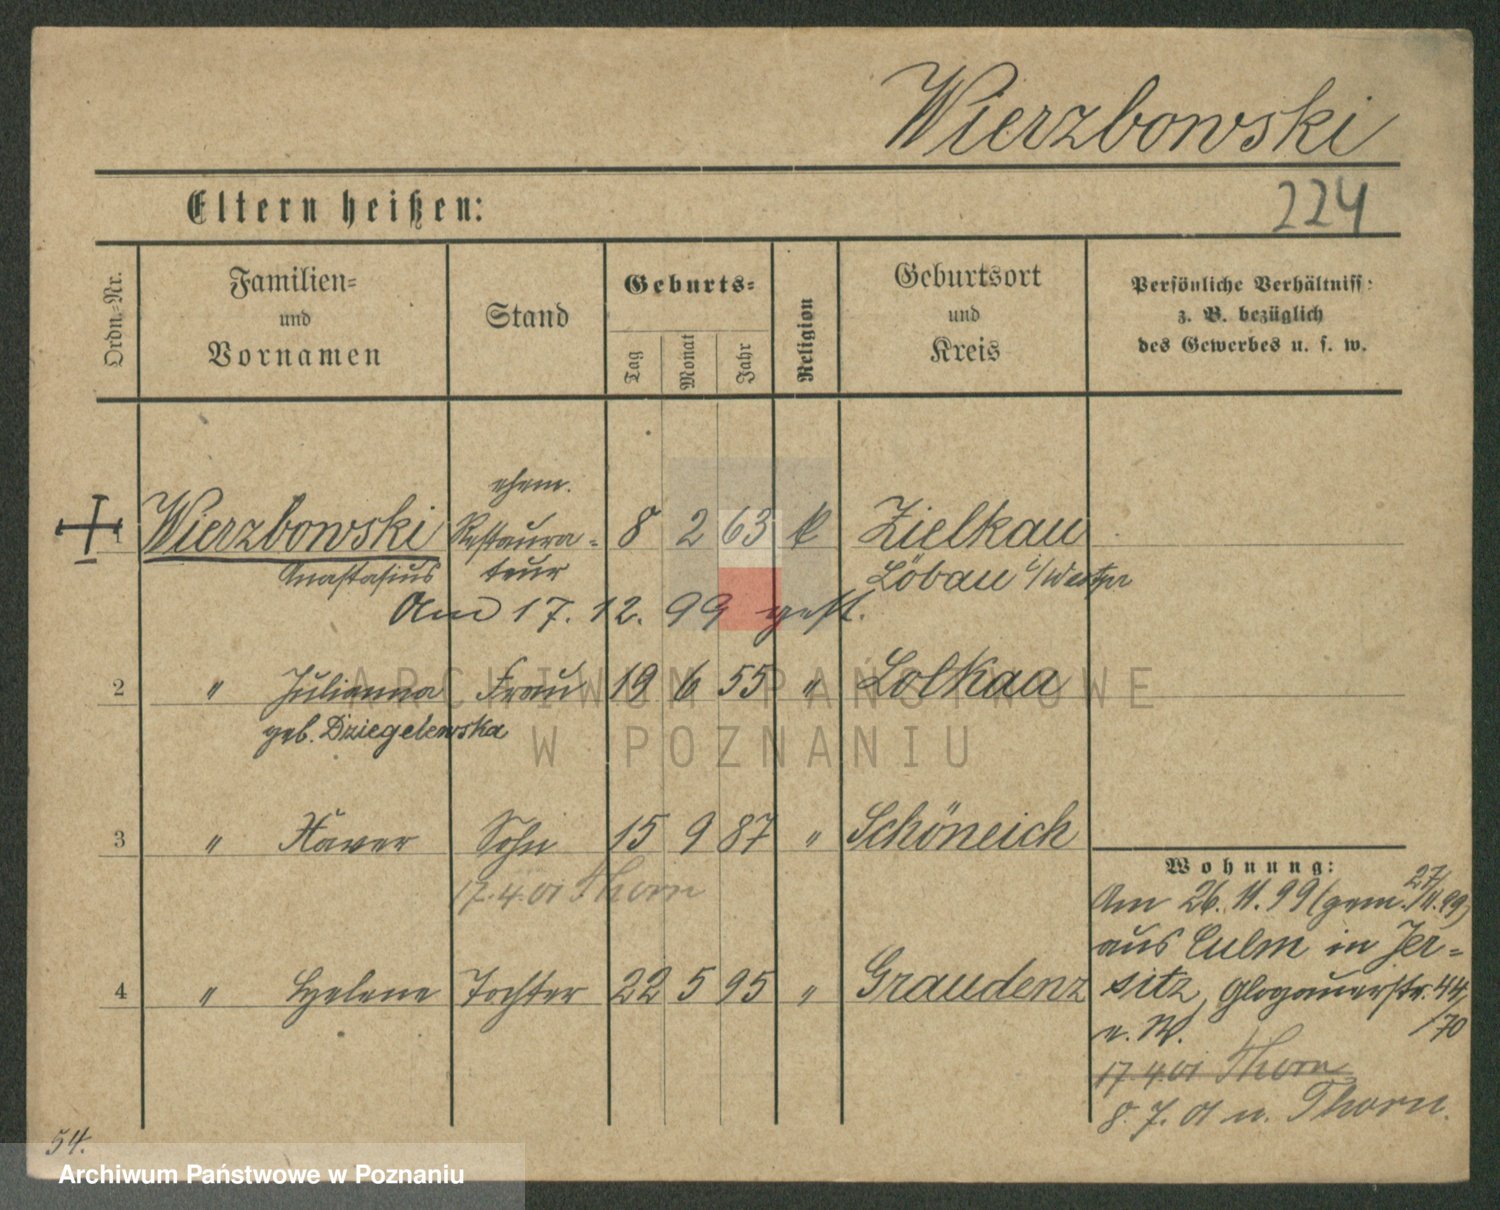 Wierzbowski
Eltern heißen:
224
Ordn.-Nr.
Familien-
und
Vornamen
Stand
Geburts-
Tag
Monat
Jahr
Religion
Geburtsort
und
Kreis
Persönliche Verhältniss:
z. B. bezüglich
des Gewerbes u. s. w.
ehem.
1 Wierzbowski Restaura- 8 2 63 k Zielkau
Anastasius teur Löbau i/Westpr
Am 17. 12. 99 gest.
2 " Julianna Frau 19 6 55 " Lolkaa
geb. Dziegelewska
3 " Xaver Sohn 15 9 87 " Schöneich
17.4.01 Thorn
4 " Helene Tochter 22 5 95 " Graudenz
Wohnung:
Am 26. 11. 99 (gem. 27/11.99)
aus Culm in Jer-
sitz, Glogauerstr. 44/
u. W. /70
17.4.01 Thorn
8. 7. 01 n. Thorn.
54.
ARCHIWUM PAŃSTWOWE
W POZNANIU
Archiwum Państwowe w Poznaniu